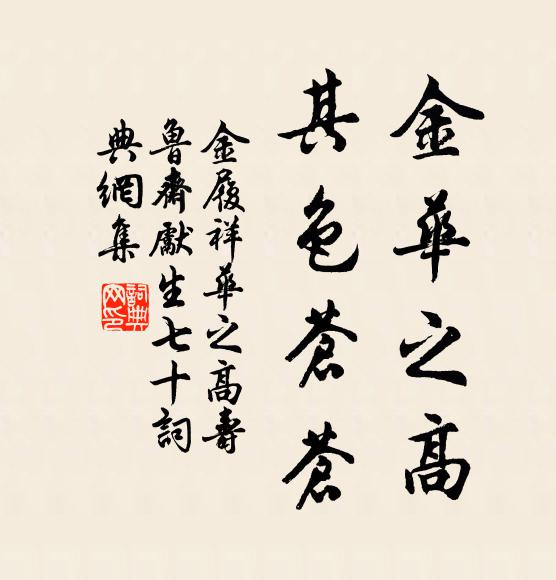 金華之高
其色蒼蒼
金履祥華之高壽
魯齋獻生七十詞
典網集
詞典
网印